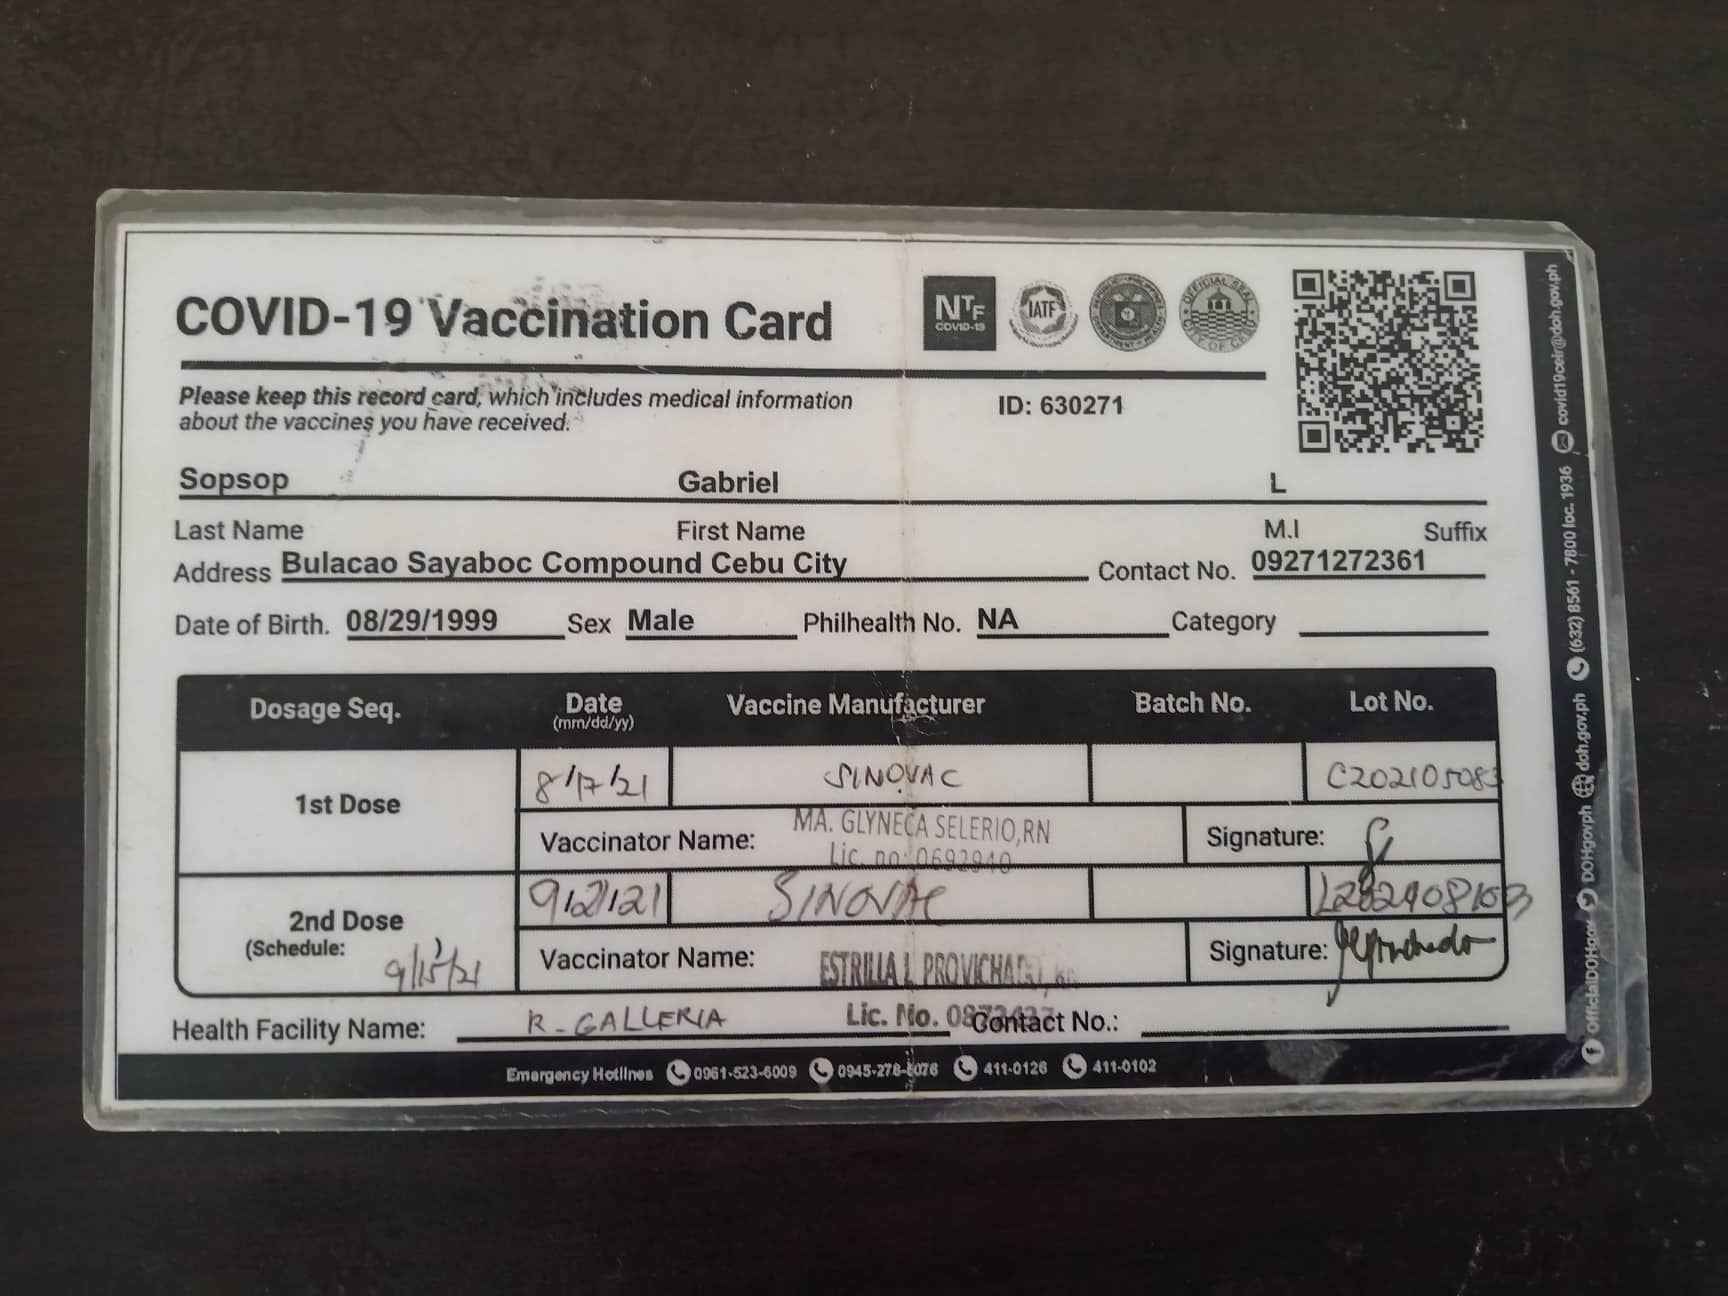 COVID-19 Vaccination Card
NTF
COVID-19
IATF
OFFICIAL SEAL
CITY OF CEBU
Please keep this record card, which includes medical information
about the vaccines you have received.
ID: 630271
Sopsop Gabriel L
Last Name First Name M.I Suffix
Address Bulacao Sayaboc Compound Cebu City Contact No. 09271272361
Date of Birth. 08/29/1999 Sex Male Philhealth No. NA Category
Dosage Seq. Date Vaccine Manufacturer Batch No. Lot No.
(mm/dd/yy)
1st Dose 8/17/21 SINOVAC C202105083
Vaccinator Name: MA. GLYNECA SELERIO,RN Signature:
Lic. no: 0692940
2nd Dose 9/21/21 SINOVAC
(Schedule: 9/15/21)
Vaccinator Name: ESTRILLA L Signature:
Health Facility Name: R-GALLERIA Lic. No. Contact No.:
Emergency Hotlines 0961-523-6009 0945-278-8076 411-0126 411-0102
OfficialDOHgov DOHgovph doh.gov.ph (632) 8561-7800 loc. 1936 covid19ceir@doh.gov.ph